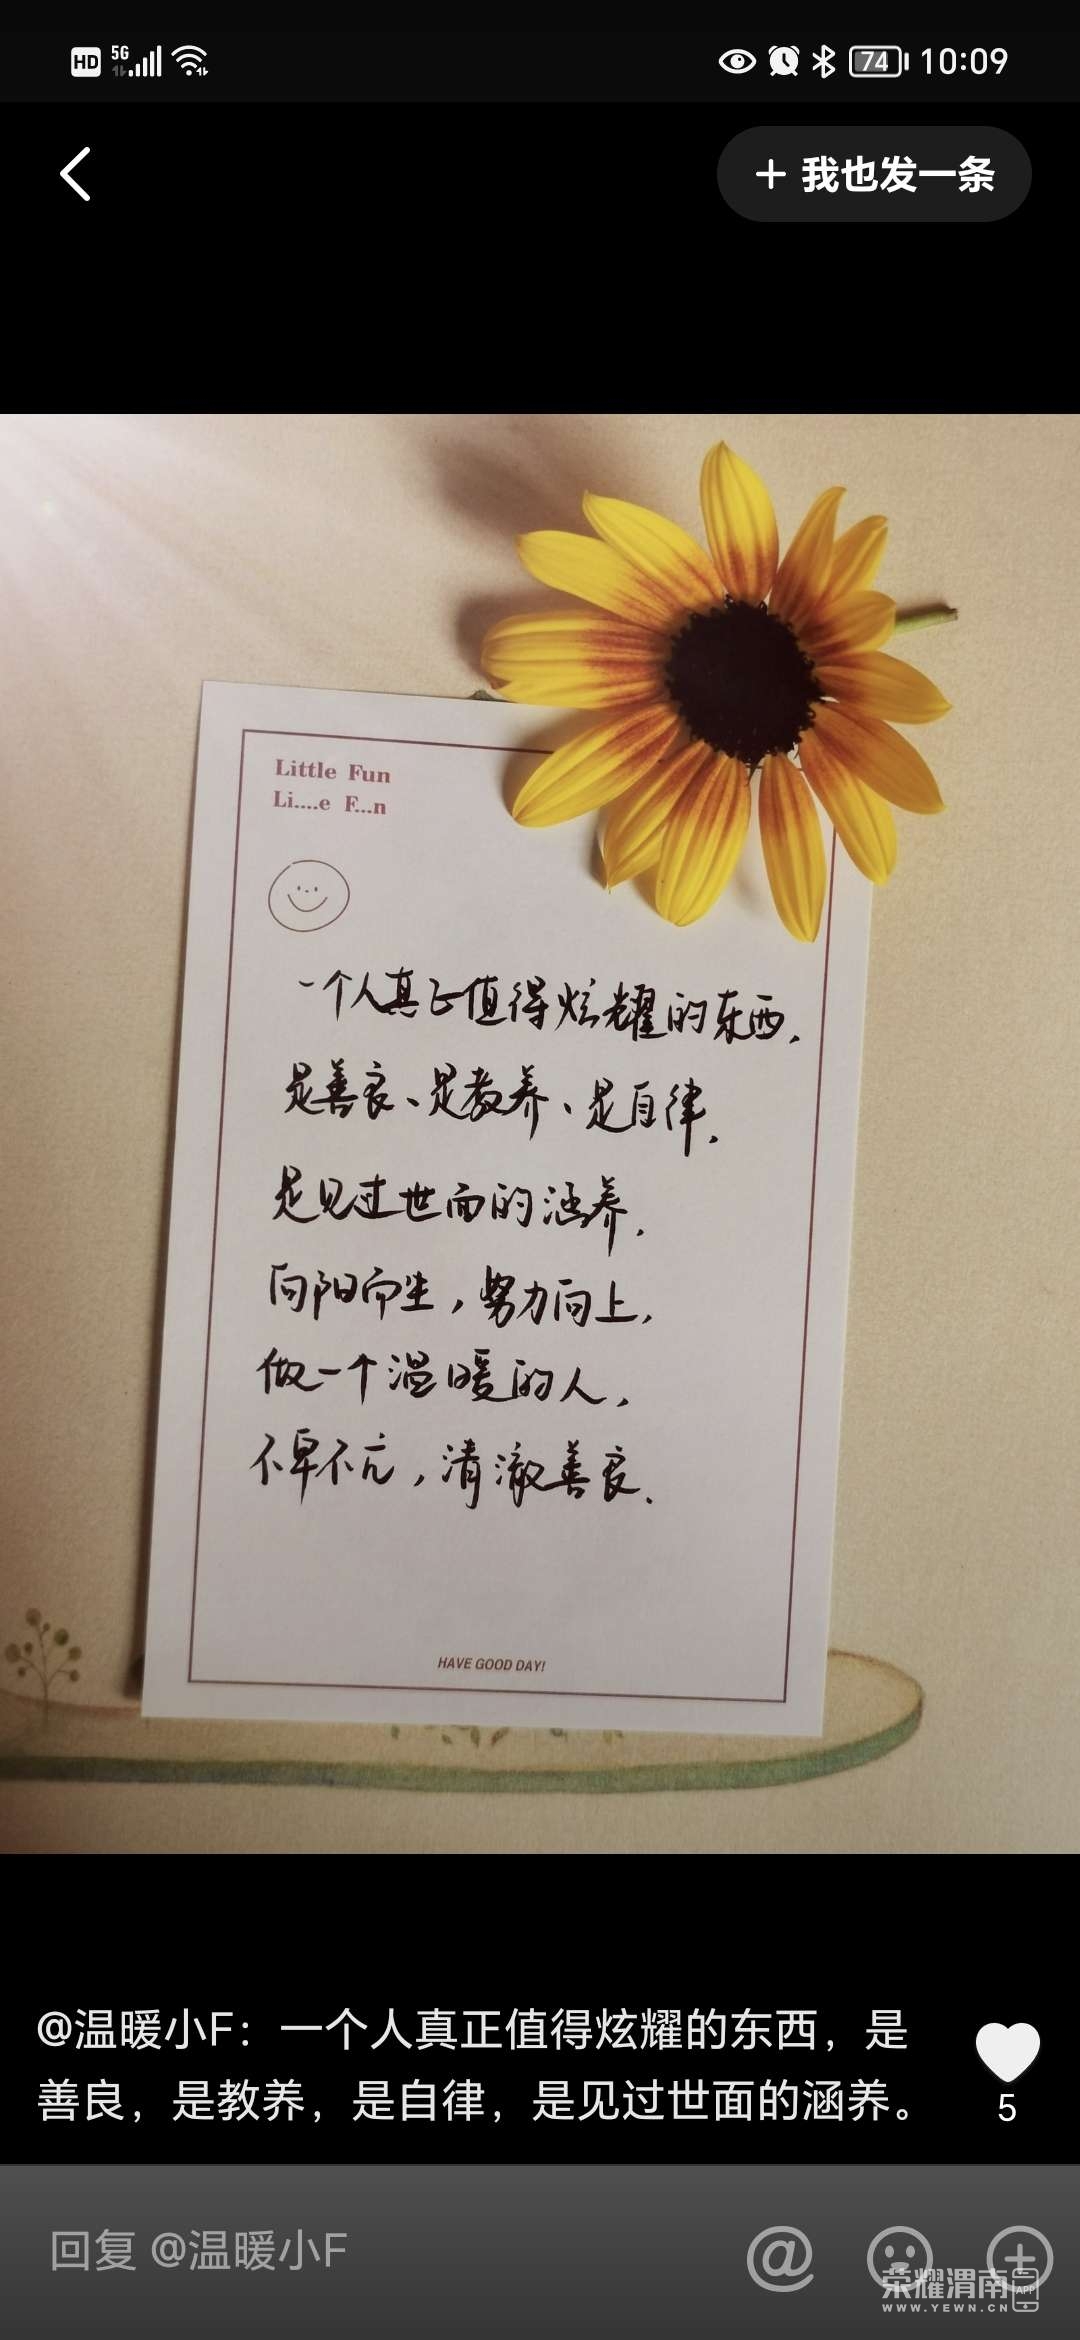 HD 5G 74 10:09
+ 我也发一条
Little Fun
Li....e F...n
一个人真正值得炫耀的东西，
是善良、是教养、是自律，
是见过世面的涵养，
向阳而生，努力向上，
做一个温暖的人，
不卑不亢，清澈善良．
HAVE GOOD DAY!
@温暖小F：一个人真正值得炫耀的东西，是
善良，是教养，是自律，是见过世面的涵养。
5
回复 @温暖小F
荣耀渭南 APP
WWW.YEWN.CN